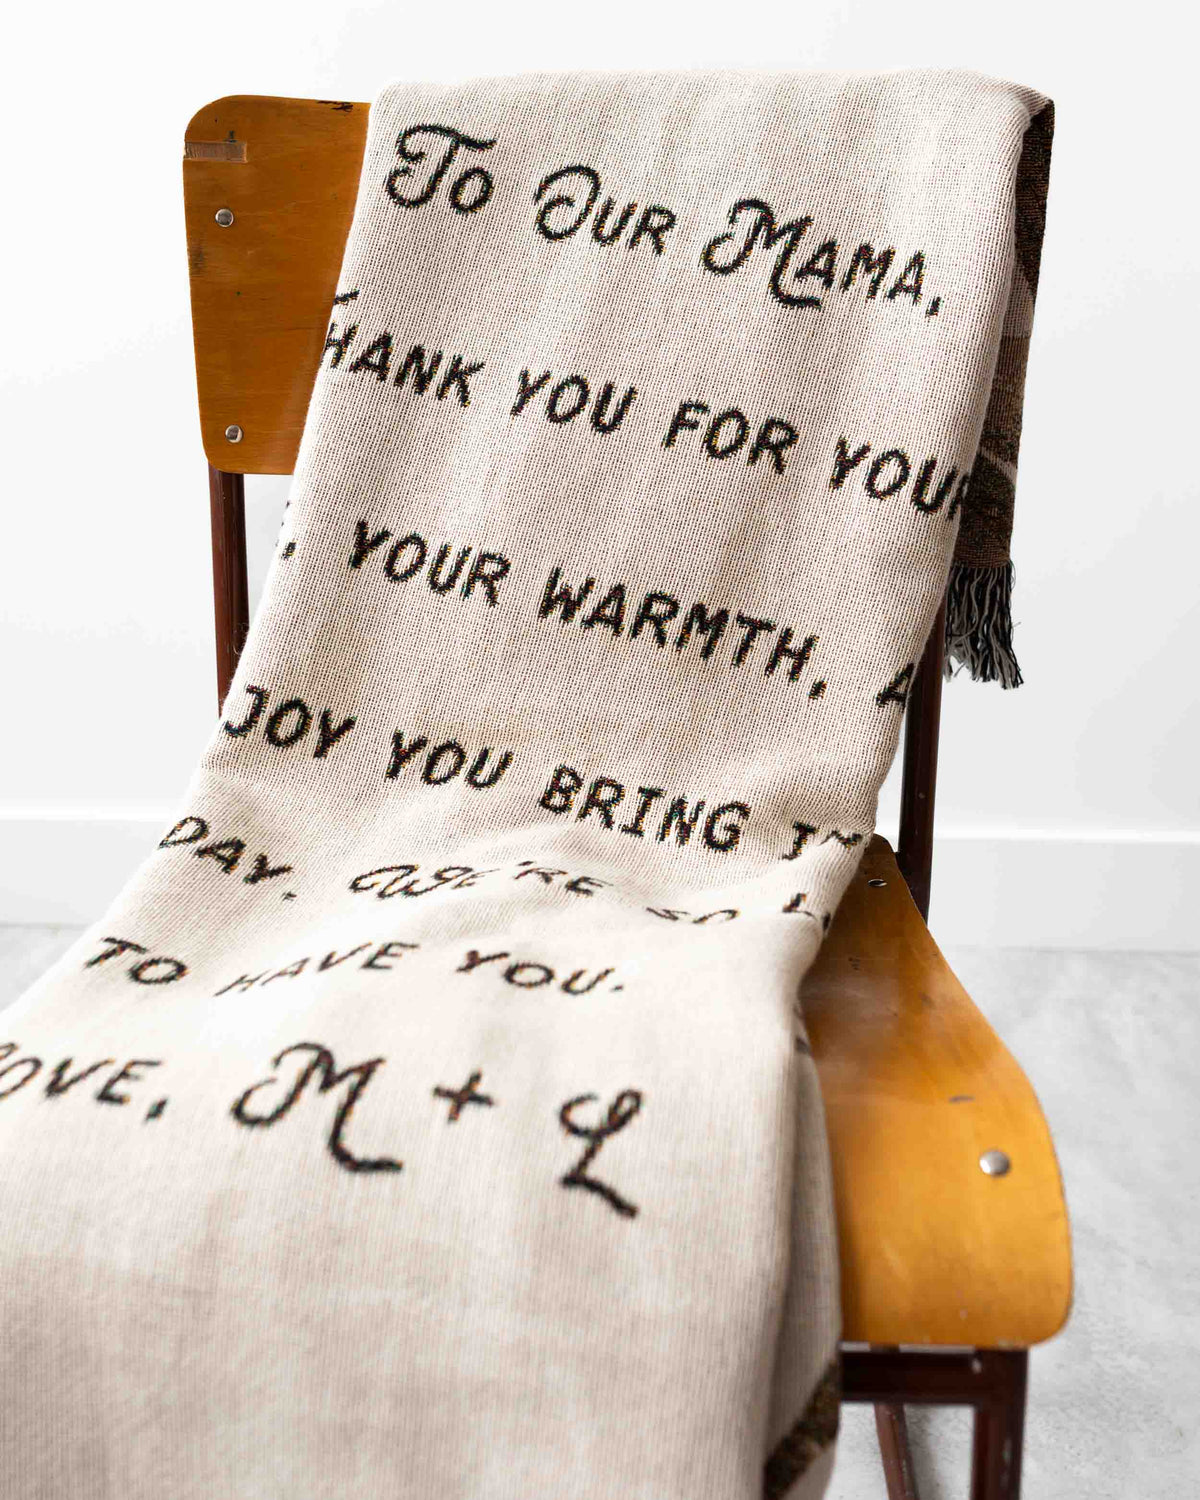 To Our Mama,
Thank you for your
, your warmth, a
joy you bring in
day. We're so l
to have you.
Love, M + L